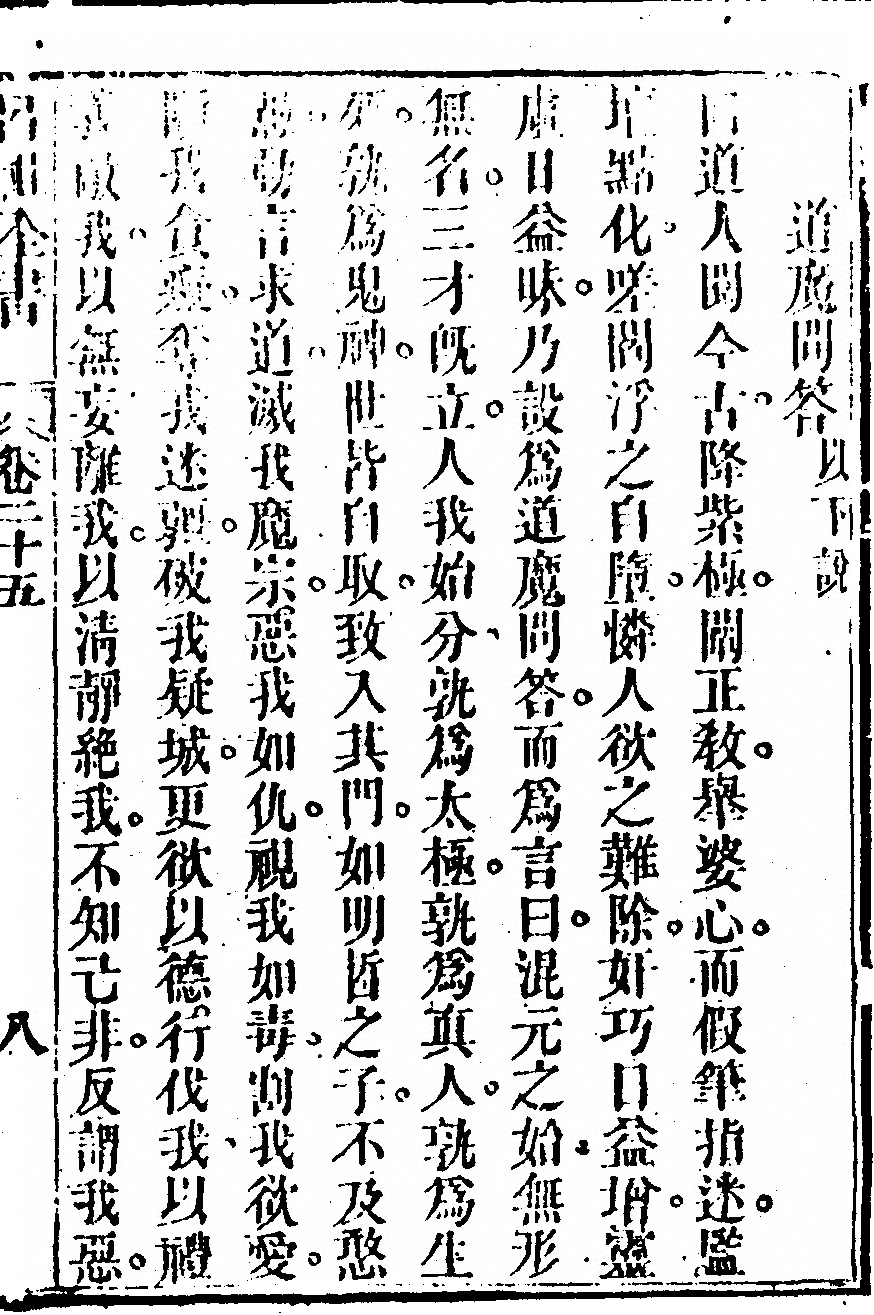 道魔問答 以下說
回道人閱今古。降紫極。闡正教。舉婆心。而假筆指迷。臨
壇點化。嗟閻浮之自墮。憐人欲之難除。奸巧日益增。靈
虛日益昧。乃設為道魔問答。而為言曰。混元之始。無形
無名。三才既立。人我始分、孰為太極。孰為真人。孰為生
死。孰為鬼神。世皆自取。致入其門。如明哲之子。不及憨
愚。動言求道。滅我魔宗。惡我如仇。視我如毒。割我欲愛。
斷我貪癡。奪我迷疆。破我疑城。更欲以德。行伐我、以禮
義敵我。以無妄離我。以清靜絕我。不知己非。反謂我惡。
呂祖全書 卷二十五 八